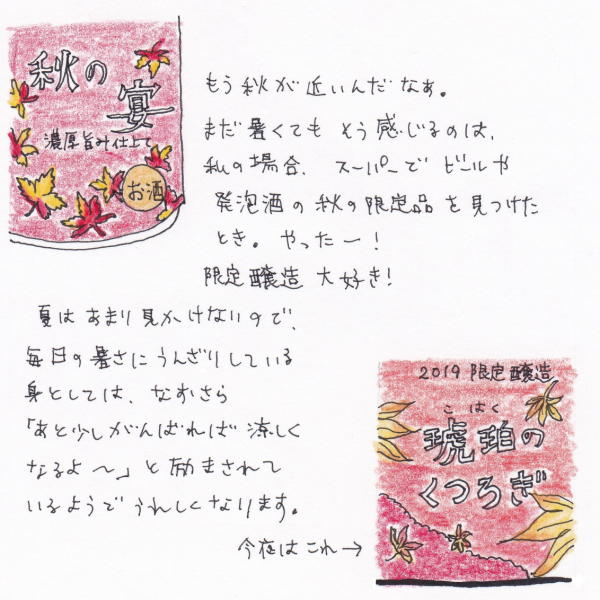 秋の
宴
濃厚旨み仕立て
お酒
もう秋が近いんだなぁ。
まだ暑くてもそう感じるのは、
私の場合、スーパーでビールや
発泡酒の秋の限定品を見つけた
とき。やったー!
限定醸造大好き!
夏はあまり見かけないので、
毎日の暑さにうんざりしている
身としては、なおさら
「あと少しがんばれば涼しく
なるよ〜」と励まされて
いるようでうれしくなります。
今夜はこれ→
2019限定醸造
こはく
琥珀の
くつろぎ